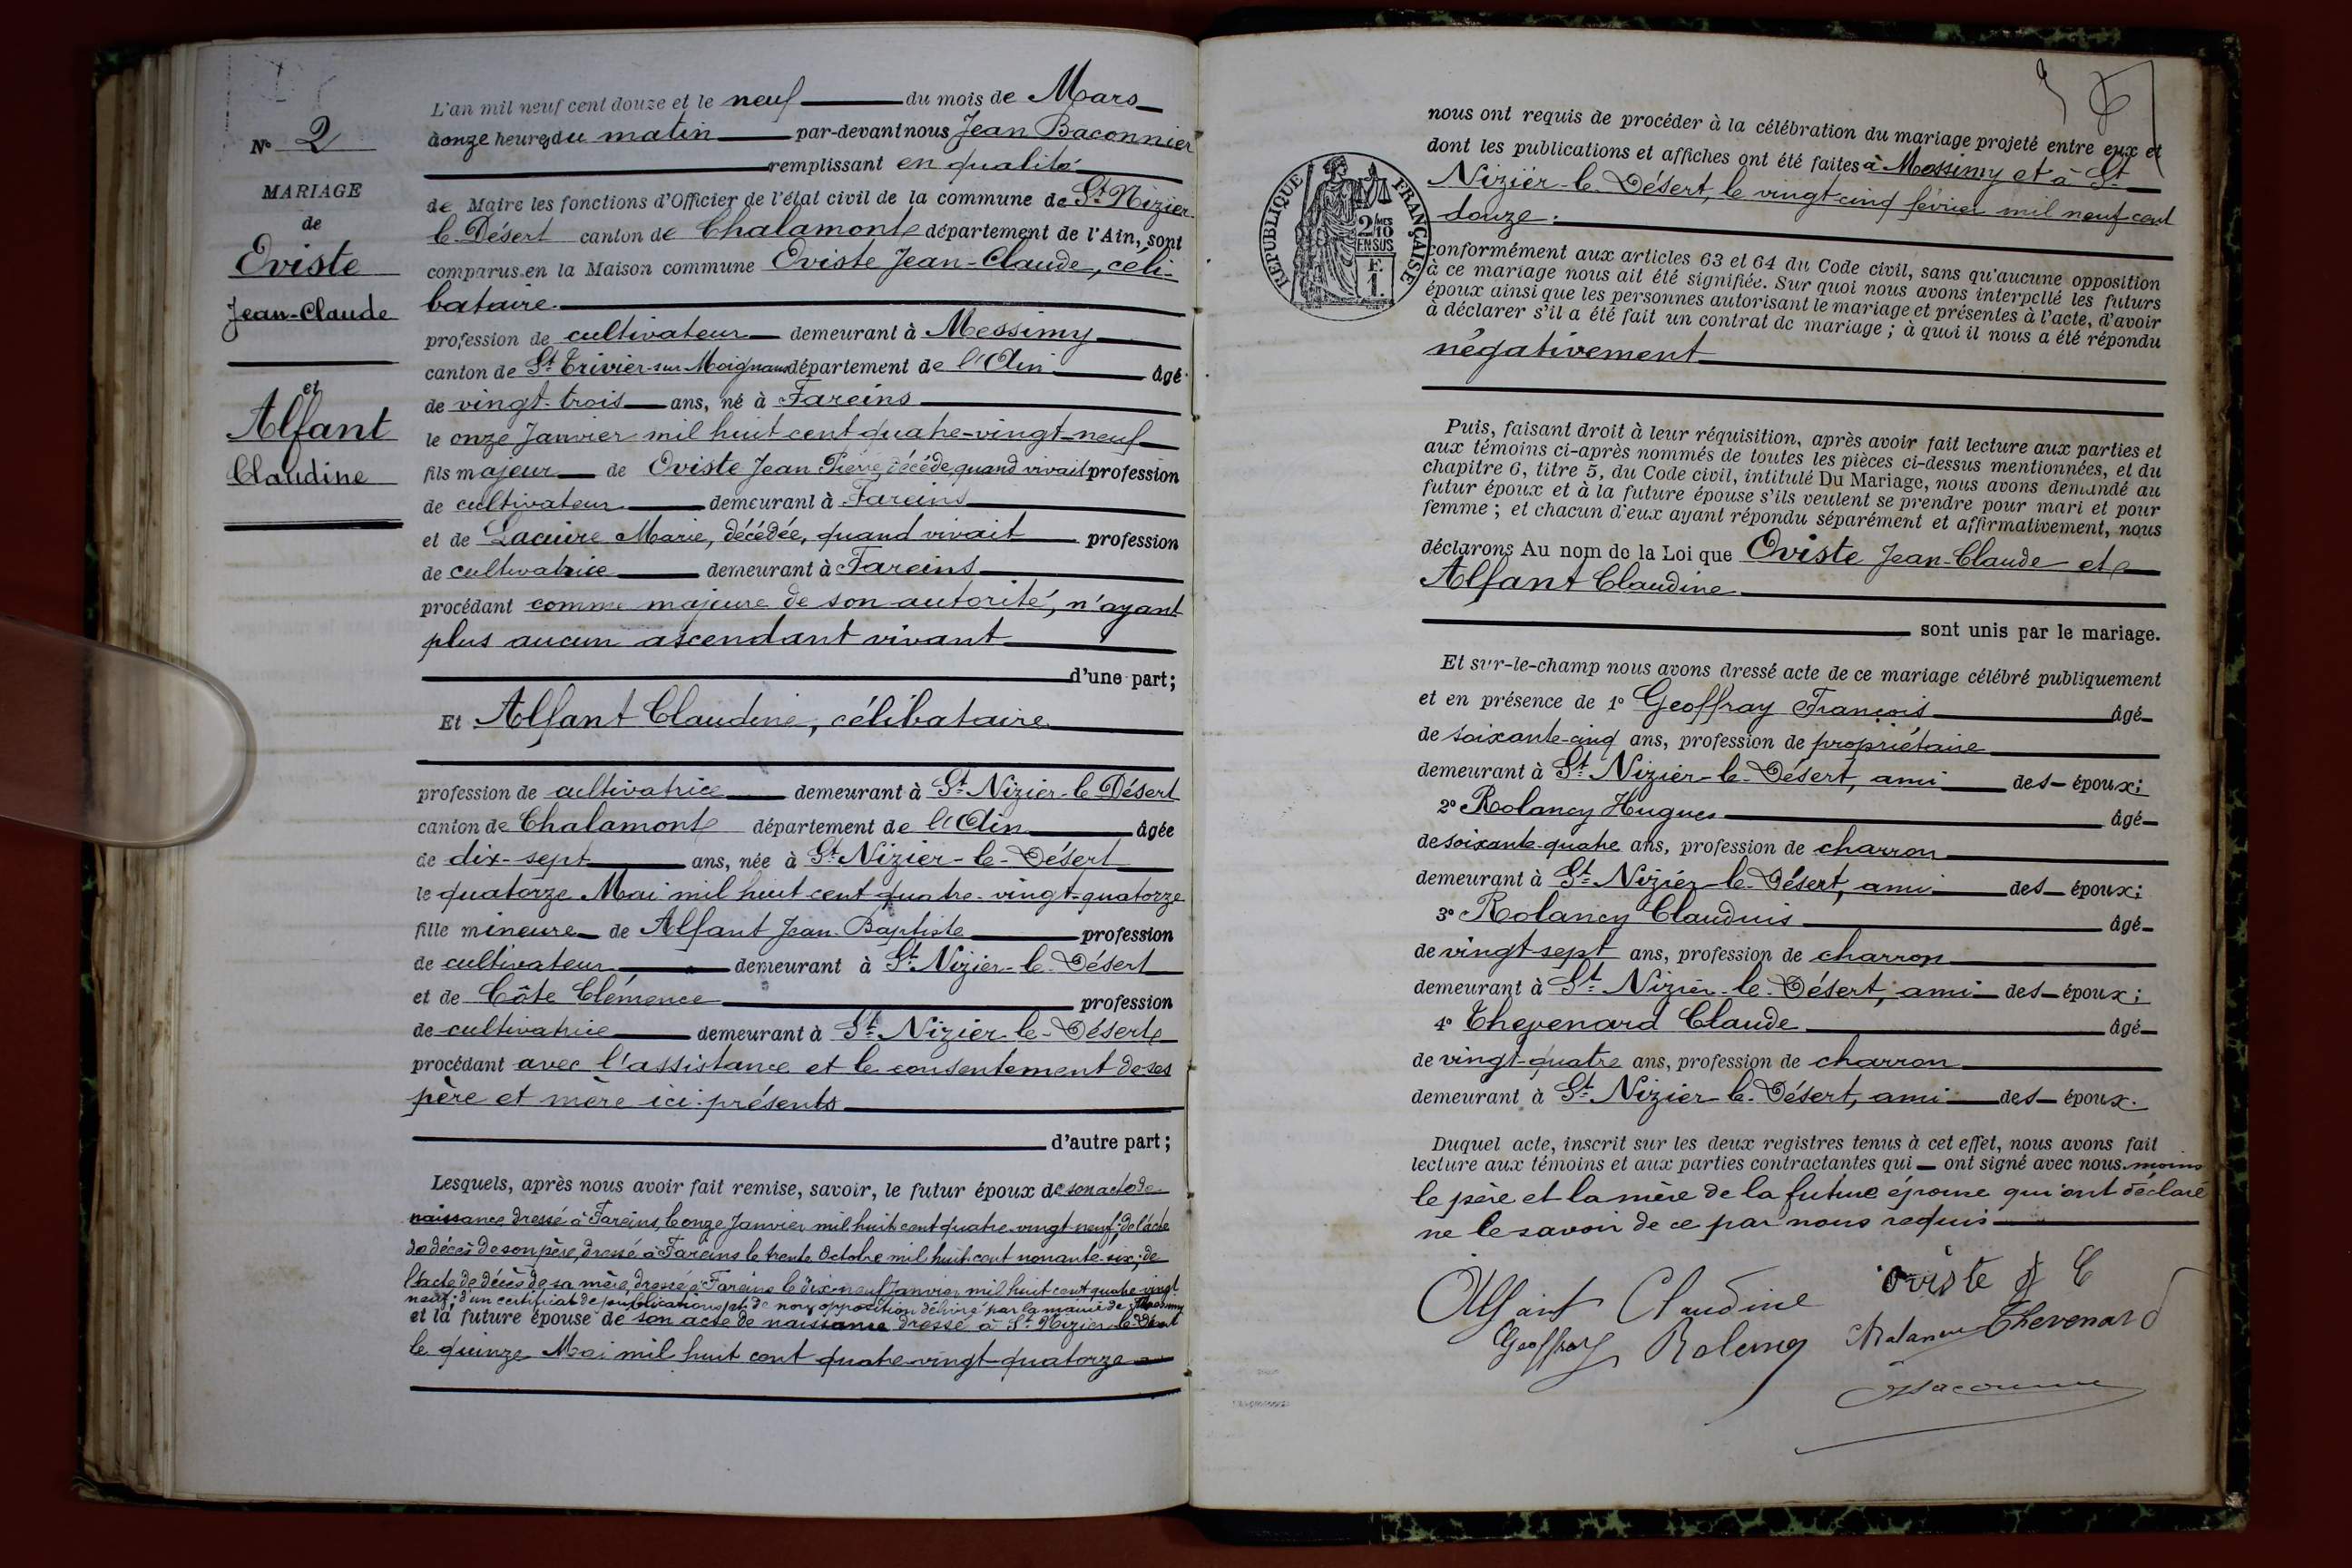 N° 2
MARIAGE
de
Oviste
Jean-Claude
et
Alfant
Claudine
L'an mil neuf cent douze et le neuf du mois de Mars
à onze heures du matin par-devant nous Jean Baconnier
remplissant en qualité
de Maire les fonctions d'Officier de l'état civil de la commune de St Nizier
le Désert canton de Chalamont département de l'Ain, sont
comparus en la Maison commune Oviste Jean-Claude, céli-
bataire
profession de cultivateur demeurant à Messimy
canton de St Trivier-sur-Moignans département de l'Ain âgé
de vingt-trois ans, né à Fareins
le onze Janvier mil huit cent quatre-vingt-neuf
fils majeur de Oviste Jean Pierre, décédé, quand vivait profession
de cultivateur demeurant à Fareins
et de Lacuire Marie, décédée, quand vivait profession
de cultivatrice demeurant à Fareins
procédant comme majeure de son autorité, n'ayant
plus aucun ascendant vivant
d'une part;
Et Alfant Claudine, célibataire
profession de cultivatrice demeurant à St Nizier-le-Désert
canton de Chalamont département de l'Ain âgée
de dix-sept ans, née à St Nizier-le-Désert
le quatorze Mai mil huit cent quatre-vingt-quatorze
fille mineure de Alfant Jean-Baptiste profession
de cultivateur demeurant à St Nizier-le-Désert
et de Côte Clémence profession
de cultivatrice demeurant à St Nizier-le-Désert
procédant avec l'assistance et le consentement de ses
père et mère ici présents
d'autre part;
Lesquels, après nous avoir fait remise, savoir, le futur époux de son acte de
naissance dressé à Fareins, le onze Janvier mil huit cent quatre-vingt-neuf; de l'acte
de décès de son père, dressé à Fareins le trente Octobre mil huit cent nonante-six; de
l'acte de décès de sa mère, dressé à Fareins le dix-neuf Janvier mil huit cent quatre vingt
neuf; d'un certificat de publications et de non opposition délivré par la mairie de Messimy
et la future épouse de son acte de naissance dressé à St Nizier-le-Désert
le quinze Mai mil huit cent quatre-vingt-quatorze
RÉPUBLIQUE FRANÇAISE
2/10 MES
EN SUS
F.
1.
nous ont requis de procéder à la célébration du mariage projeté entre eux et
dont les publications et affiches ont été faites à Messimy et à St
Nizier-le-Désert, le vingt-cinq février mil neuf cent
douze.
conformément aux articles 63 et 64 du Code civil, sans qu'aucune opposition
à ce mariage nous ait été signifiée. Sur quoi nous avons interpellé les futurs
époux ainsi que les personnes autorisant le mariage et présentes à l'acte, d'avoir
à déclarer s'il a été fait un contrat de mariage; à quoi il nous a été répondu
négativement
Puis, faisant droit à leur réquisition, après avoir fait lecture aux parties et
aux témoins ci-après nommés de toutes les pièces ci-dessus mentionnées, et du
chapitre 6, titre 5, du Code civil, intitulé Du Mariage, nous avons demandé au
futur époux et à la future épouse s'ils veulent se prendre pour mari et pour
femme; et chacun d'eux ayant répondu séparément et affirmativement, nous
déclarons Au nom de la Loi que Oviste Jean-Claude et
Alfant Claudine
sont unis par le mariage.
Et sur-le-champ nous avons dressé acte de ce mariage célébré publiquement
et en présence de 1° Geoffray François âgé
de soixante-cinq ans, profession de propriétaire
demeurant à St Nizier-le-Désert, ami des époux;
2° Rolancy Hugues âgé
de soixante-quatre ans, profession de charron
demeurant à St Nizier-le-Désert, ami des époux;
3° Rolancy Claudius âgé
de vingt-sept ans, profession de charron
demeurant à St Nizier-le-Désert, ami des époux;
4° Thevenard Claude âgé
de vingt-quatre ans, profession de charron
demeurant à St Nizier-le-Désert, ami des époux.
Duquel acte, inscrit sur les deux registres tenus à cet effet, nous avons fait
lecture aux témoins et aux parties contractantes qui ont signé avec nous moins
le père et la mère de la future épouse qui ont déclaré
ne le savoir de ce par nous requis
Alfant Claudine oviste J C
Geoffray Rolancy Rolancy Thevenard
Baconnier